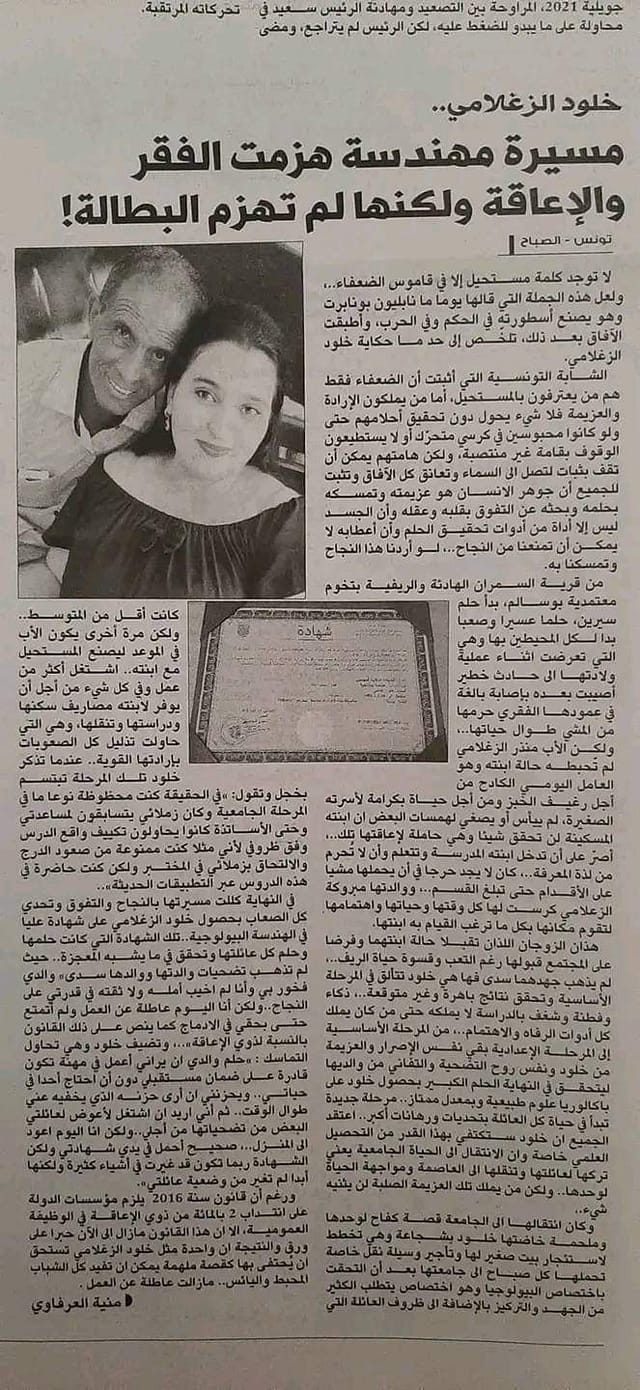 جويلية 2021، المراوحة بين التصعيد ومهادنة الرئيس سعيد في تحركاته المرتقبة.
محاولة على ما يبدو للضغط عليه، لكن الرئيس لم يتراجع، ومضى
خلود الزغلامي..
مسيرة مهندسة هزمت الفقر
والإعاقة ولكنها لم تهزم البطالة!
تونس - الصباح
لا توجد كلمة مستحيل إلا في قاموس الضعفاء..،
ولعل هذه الجملة التي قالها يوما ما نابليون بونابرت
وهو يصنع أسطورته في الحكم وفي الحرب، وأطبقت
الآفاق بعد ذلك، تلخص إلى حد ما حكاية خلود
الزغلامي.
الشابة التونسية التي أثبتت أن الضعفاء فقط
هم من يعترفون بالمستحيل، أما من يملكون الإرادة
والعزيمة فلا شيء يحول دون تحقيق أحلامهم حتى
ولو كانوا محبوسين في كرسي متحرّك أو لا يستطيعون
الوقوف بقامة غير منتصبة، ولكن هامتهم يمكن أن
تقف بثبات لتصل الى السماء وتعانق كل الآفاق وتثبت
للجميع أن جوهر الانسان هو عزيمته وتمسكه
بحلمه وبحثه عن التفوق بقلبه وعقله وأن الجسد
ليس إلا أداة من أدوات تحقيق الحلم وأن أعطابه لا
يمكن أن تمنعنا من النجاح..، لو أردنا هذا النجاح
وتمسكنا به.
من قرية السمران الهادئة والريفية بتخوم
معتمدية بوسالم، بدأ حلم
سيرين، حلما عسيرا وصعبا
بدا لكل المحيطين بها وهي
التي تعرضت اثناء عملية
ولادتها الى حادث خطير
أصيبت بعده بإصابة بالغة
في عمودها الفقري حرمها
من المشي طوال حياتها..،
ولكن الأب منذر الزغلامي
لم تُحبطه حالة ابنته وهو
العامل اليومي الكادح من
أجل رغيف الخبز ومن أجل حياة بكرامة لأسرته
الصغيرة، لم ييأس أو يصغي لهمسات البعض ان ابنته
المسكينة لن تحقق شيئا وهي حاملة لإعاقتها تلك..،
أصرّ على أن تدخل ابنته المدرسة وتتعلم وأن لا تُحرم
من لذة المعرفة..، كان لا يجد حرجا في أن يحملها مشيا
على الأقدام حتى تبلغ القسم..، ووالدتها مبروكة
الزغلامي كرست لها كل وقتها وحياتها واهتمامها
لتقوم مكانها بكل ما ترغب القيام به ابنتها.
هذان الزوجان اللذان تقبلا حالة ابنتهما وفرضا
على المجتمع قبولها رغم التعب وقسوة حياة الريف..،
لم يذهب جهدهما سدى فها هي خلود تتألق في المرحلة
الأساسية وتحقق نتائج باهرة وغير متوقعة..، ذكاء
وفطنة وشغف بالدراسة لا يملكه حتى من كان يملك
كل أدوات الرفاه والاهتمام..، من المرحلة الأساسية
إلى المرحلة الإعدادية بقي نفس الإصرار والعزيمة
من خلود ونفس روح التضحية والتفاني من والديها
ليتحقق في النهاية الحلم الكبير بحصول خلود على
باكالوريا علوم طبيعية وبمعدل ممتاز.. مرحلة جديدة
تبدأ في حياة كل العائلة بتحديات ورهانات أكبر.. اعتقد
الجميع ان خلود ستكتفي بهذا القدر من التحصيل
العلمي خاصة وان الانتقال الى الحياة الجامعية يعني
تركها لعائلتها وتنقلها الى العاصمة ومواجهة الحياة
لوحدها.. ولكن من يملك تلك العزيمة الصلبة لن يثنيه
شيء..
وكان انتقالها الى الجامعة قصة كفاح لوحدها
وملحمة خاضتها خلود بشجاعة وهي تخطط
لاستئجار بيت صغير لها وتأجير وسيلة نقل خاصة
تحملها كل صباح الى جامعتها بعد أن التحقت
باختصاص البيولوجيا وهو اختصاص يتطلب الكثير
من الجهد والتركيز بالإضافة الى ظروف العائلة التي
شهادة
كانت أقل من المتوسط..
ولكن مرة أخرى يكون الأب
في الموعد ليصنع المستحيل
مع ابنته.. اشتغل أكثر من
عمل وفي كل شيء من أجل أن
يوفر لابنته مصاريف سكنها
ودراستها وتنقلها، وهي التي
حاولت تذليل كل الصعوبات
بإرادتها القوية.. عندما تذكر
خلود تلك المرحلة تبتسم
بخجل وتقول: «في الحقيقة كنت محظوظة نوعا ما في
المرحلة الجامعية وكان زملائي يتسابقون لمساعدتي
وحتى الأساتذة كانوا يحاولون تكييف واقع الدرس
وفق ظروفي لأني مثلا كنت ممنوعة من صعود الدرج
والالتحاق بزملائي في المختبر ولكن كنت حاضرة في
هذه الدروس عبر التطبيقات الحديثة»..
في النهاية كللت مسيرتها بالنجاح والتفوق وتحدي
كل الصعاب بحصول خلود الزغلامي على شهادة عليا
في الهندسة البيولوجية..تلك الشهادة التي كانت حلمها
وحلم كل عائلتها وتحقق في ما يشبه المعجزة.. حيث
لم تذهب تضحيات والدتها ووالدها سدى» والدي
فخور بي وأنا لم اخيب أمله ولا ثقته في قدرتي على
النجاح..ولكن أنا اليوم عاطلة عن العمل ولم أتمتع
حتى بحقي في الادماج كما ينص على ذلك القانون
بالنسبة لذوي الإعاقة»..، وتضيف خلود وهي تحاول
التماسك : «حلم والدي ان يراني أعمل في مهنة تكون
قادرة على ضمان مستقبلي دون أن أحتاج أحدا في
حياتي.. ويحزنني ان أرى حزنه الذي يخفيه عني
طوال الوقت.. ثم أني اريد ان اشتغل لأعوض لعائلتي
البعض من تضحياتها من أجلي..ولكن انا اليوم اعود
الى المنزل..، صحيح أحمل في يدي شهادتي ولكن
الشهادة ربما تكون قد غيرت في أشياء كثيرة ولكنها
أبدا لم تغير من وضعية عائلتي».
ورغم أن قانون سنة 2016 يلزم مؤسسات الدولة
على انتداب 2 بالمائة من ذوي الإعاقة في الوظيفة
العمومية، الا ان هذا القانون مازال الى الآن حبرا على
ورق والنتيجة ان واحدة مثل خلود الزغلامي تستحق
ان يُحتفى بها كقصة ملهمة يمكن ان تفيد كل الشباب
المحبط واليائس.. مازالت عاطلة عن العمل .
منية العرفاوي